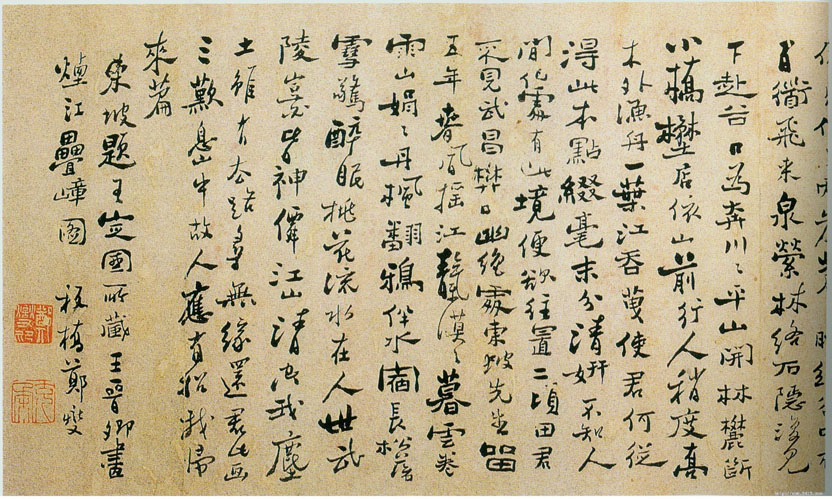 百衜飛來泉縈林絡石隱復見
下赴谷口為奔川〻平山開林麓斷
小橋壄店依山前行人稍度喬
木外漁舟一葉江吞天使君何從
得此本點綴毫末分清妍不知人
間何處有此境便欲往置二頃田君
不見武昌樊口幽絕處東坡先生留
五年春風搖江靝漠〻暮雲卷
雨山娟〻丹楓翻鴉伴水宿長松落
雪驚醉眠桃花流水在人世武
陵豈皆神僊江山清空我塵
土雖有去路尋無緣還君此畫
三歎息山中故人應有招我歸
來篇
東坡題王定國所藏王晉卿畫
煙江疊嶂圖 板橋鄭燮